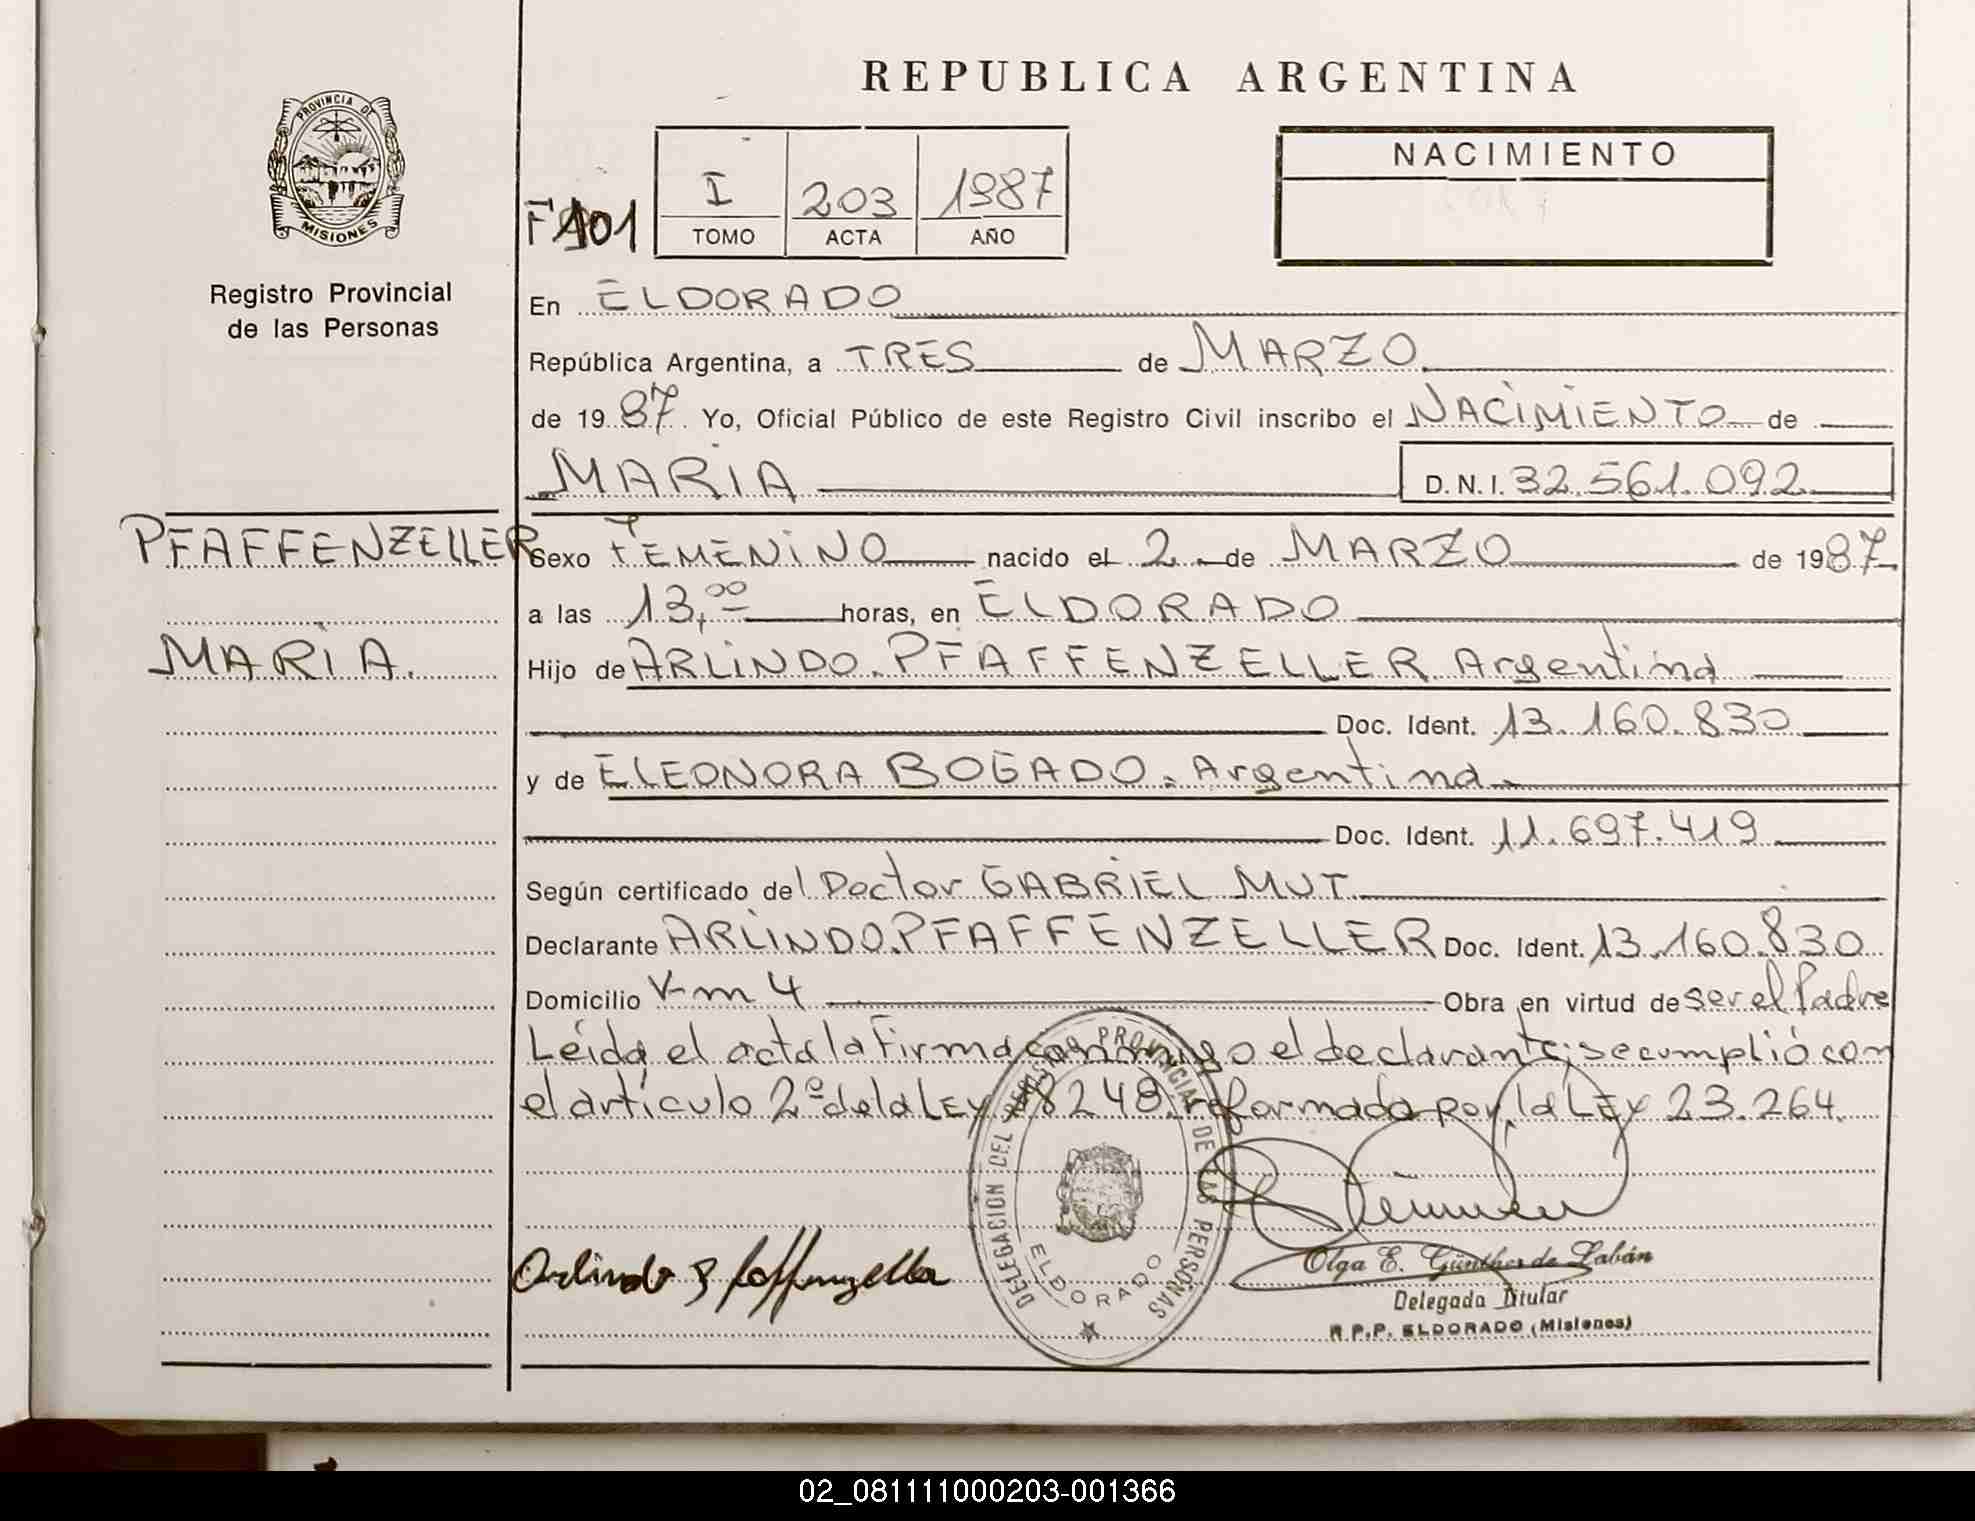 REPUBLICA ARGENTINA
PROVINCIA DE
MISIONES
Registro Provincial
de las Personas
F 101
I 203 1987
TOMO ACTA AÑO
NACIMIENTO
En ELDORADO
República Argentina, a TRES de MARZO
de 1987. Yo, Oficial Público de este Registro Civil inscribo el NACIMIENTO de
MARIA
D.N.I. 32.561.092
PFAFFENZELLER
MARIA.
Sexo FEMENINO nacido el 2 de MARZO de 1987
a las 13,00 horas, en ELDORADO
Hijo de ARLINDO PFAFFENZELLER Argentina
Doc. Ident. 13.160.830
y de ELEONORA BOGADO. Argentina
Doc. Ident. 11.697.419
Según certificado del Doctor GABRIEL MUT
Declarante ARLINDO PFAFFENZELLER Doc. Ident. 13.160.830
Domicilio Km 4 Obra en virtud de ser el Padre
Leida el acta la Firma conmigo el declarante; se cumplió con
el artículo 2º de la LEY 18248 reformada por la LEY 23.264.
DELEGACION DEL REGISTRO PROVINCIAL DE LAS PERSONAS
ELDORADO
Arlindo Pfaffenzeller
Olga E. Günther de Labán
Delegada Titular
R.P.P. ELDORADO (Misiones)
02_081111000203-001366